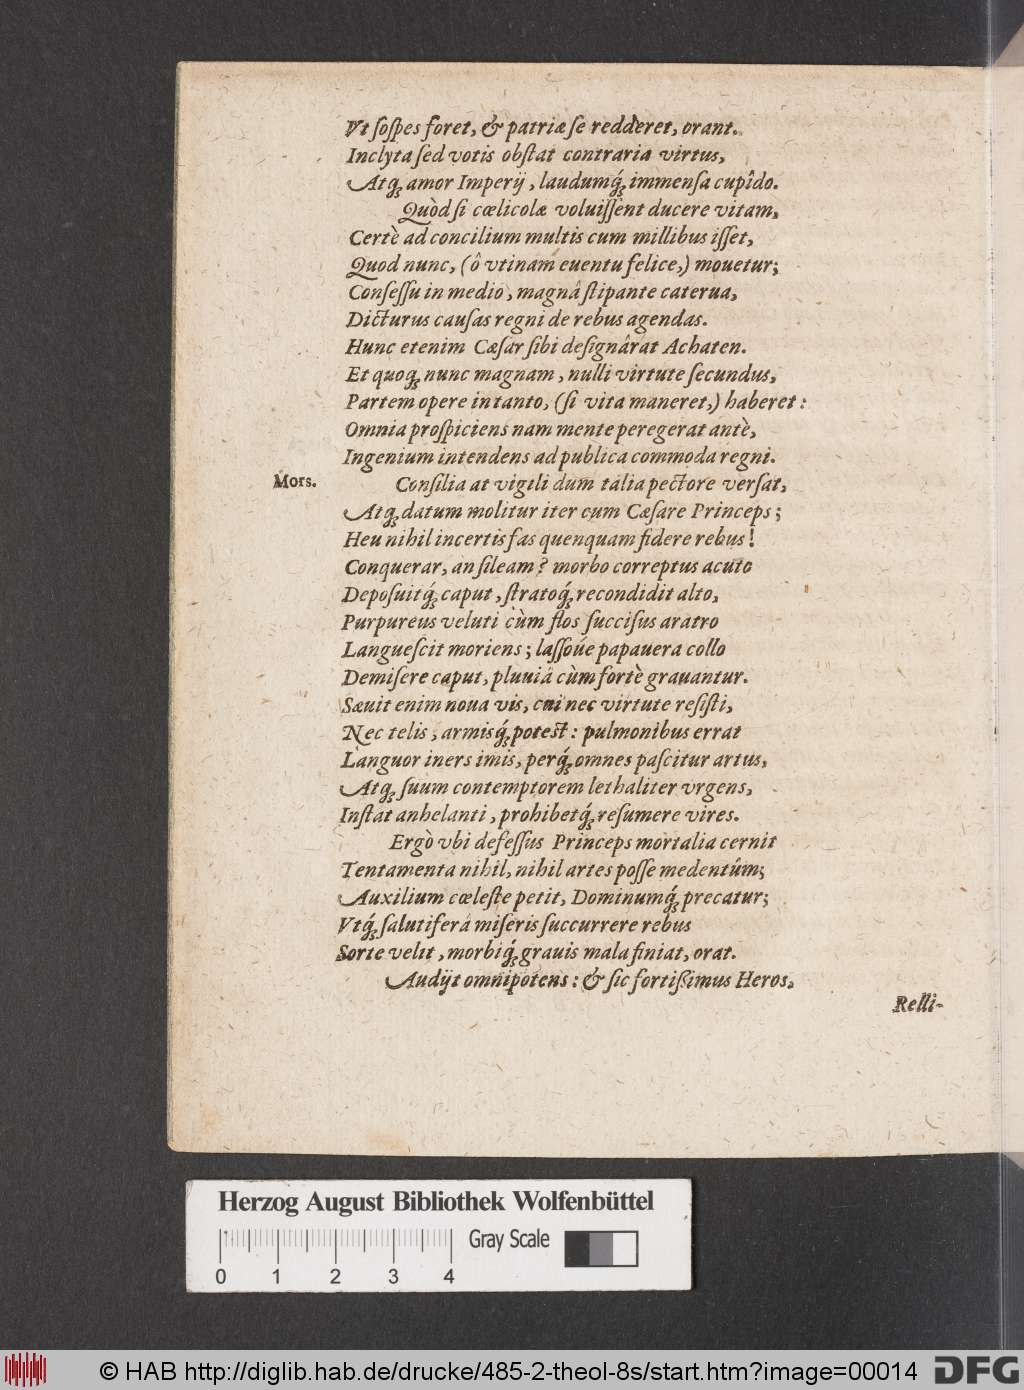 Vt ſoſpes foret, & patriæ ſe redderet, orant.
Inclyta ſed votis obſtat contraria virtus,
Atq́; amor Imperij, laudumq́; immenſa cupîdo.
Quòd ſi cœlicolæ voluiſſent ducere vitam,
Certè ad concilium multis cum millibus iſſet,
Quod nunc, (ô vtinam euentu felice,) mouetur;
Conſeſſu in medio, magnâ ſtipante caterua,
Dicturus cauſas regni de rebus agendas.
Hunc etenim Cæſar ſibi deſignârat Achaten.
Et quoq; nunc magnam, nulli virtute ſecundus,
Partem opere in tanto, (ſi vita maneret,) haberet:
Omnia proſpiciens nam mente peregerat antè,
Ingenium intendens ad publica commoda regni.
Mors. Conſilia at vigili dum talia pectore verſat,
Atq; datum molitur iter cum Cæſare Princeps;
Heu nihil incertis fas quenquam fidere rebus!
Conquerar, an ſileam? morbo correptus acuto
Depoſuitq́; caput, ſtratoq́; recondidit alto,
Purpureus veluti cùm flos ſucciſus aratro
Langueſcit moriens; laſſoúe papauera collo
Demiſere caput, pluuiâ cùm fortè grauantur.
Sæuit enim noua vis, cui nec virtute reſiſti,
Nec telis, armisq́; potest: pulmonibus errat
Languor iners imis, perq́; omnes paſcitur artus,
Atq; ſuum contemptorem lethaliter vrgens,
Inſtat anhelanti, prohibetq́; reſumere vires.
Ergò vbi defeſſus Princeps mortalia cernit
Tentamenta nihil, nihil artes poſſe medentûm;
Auxilium cœleſte petit, Dominumq́; precatur;
Vtq́; ſalutiferâ miſeris ſuccurrere rebus
Sorte velit, morbiq́; grauis mala finiat, orat.
Audijt omnipotens: & ſic fortißimus Heros,
Relli-
Herzog August Bibliothek Wolfenbüttel
Gray Scale
0 1 2 3 4
© HAB http://diglib.hab.de/drucke/485-2-theol-8s/start.htm?image=00014
DFG